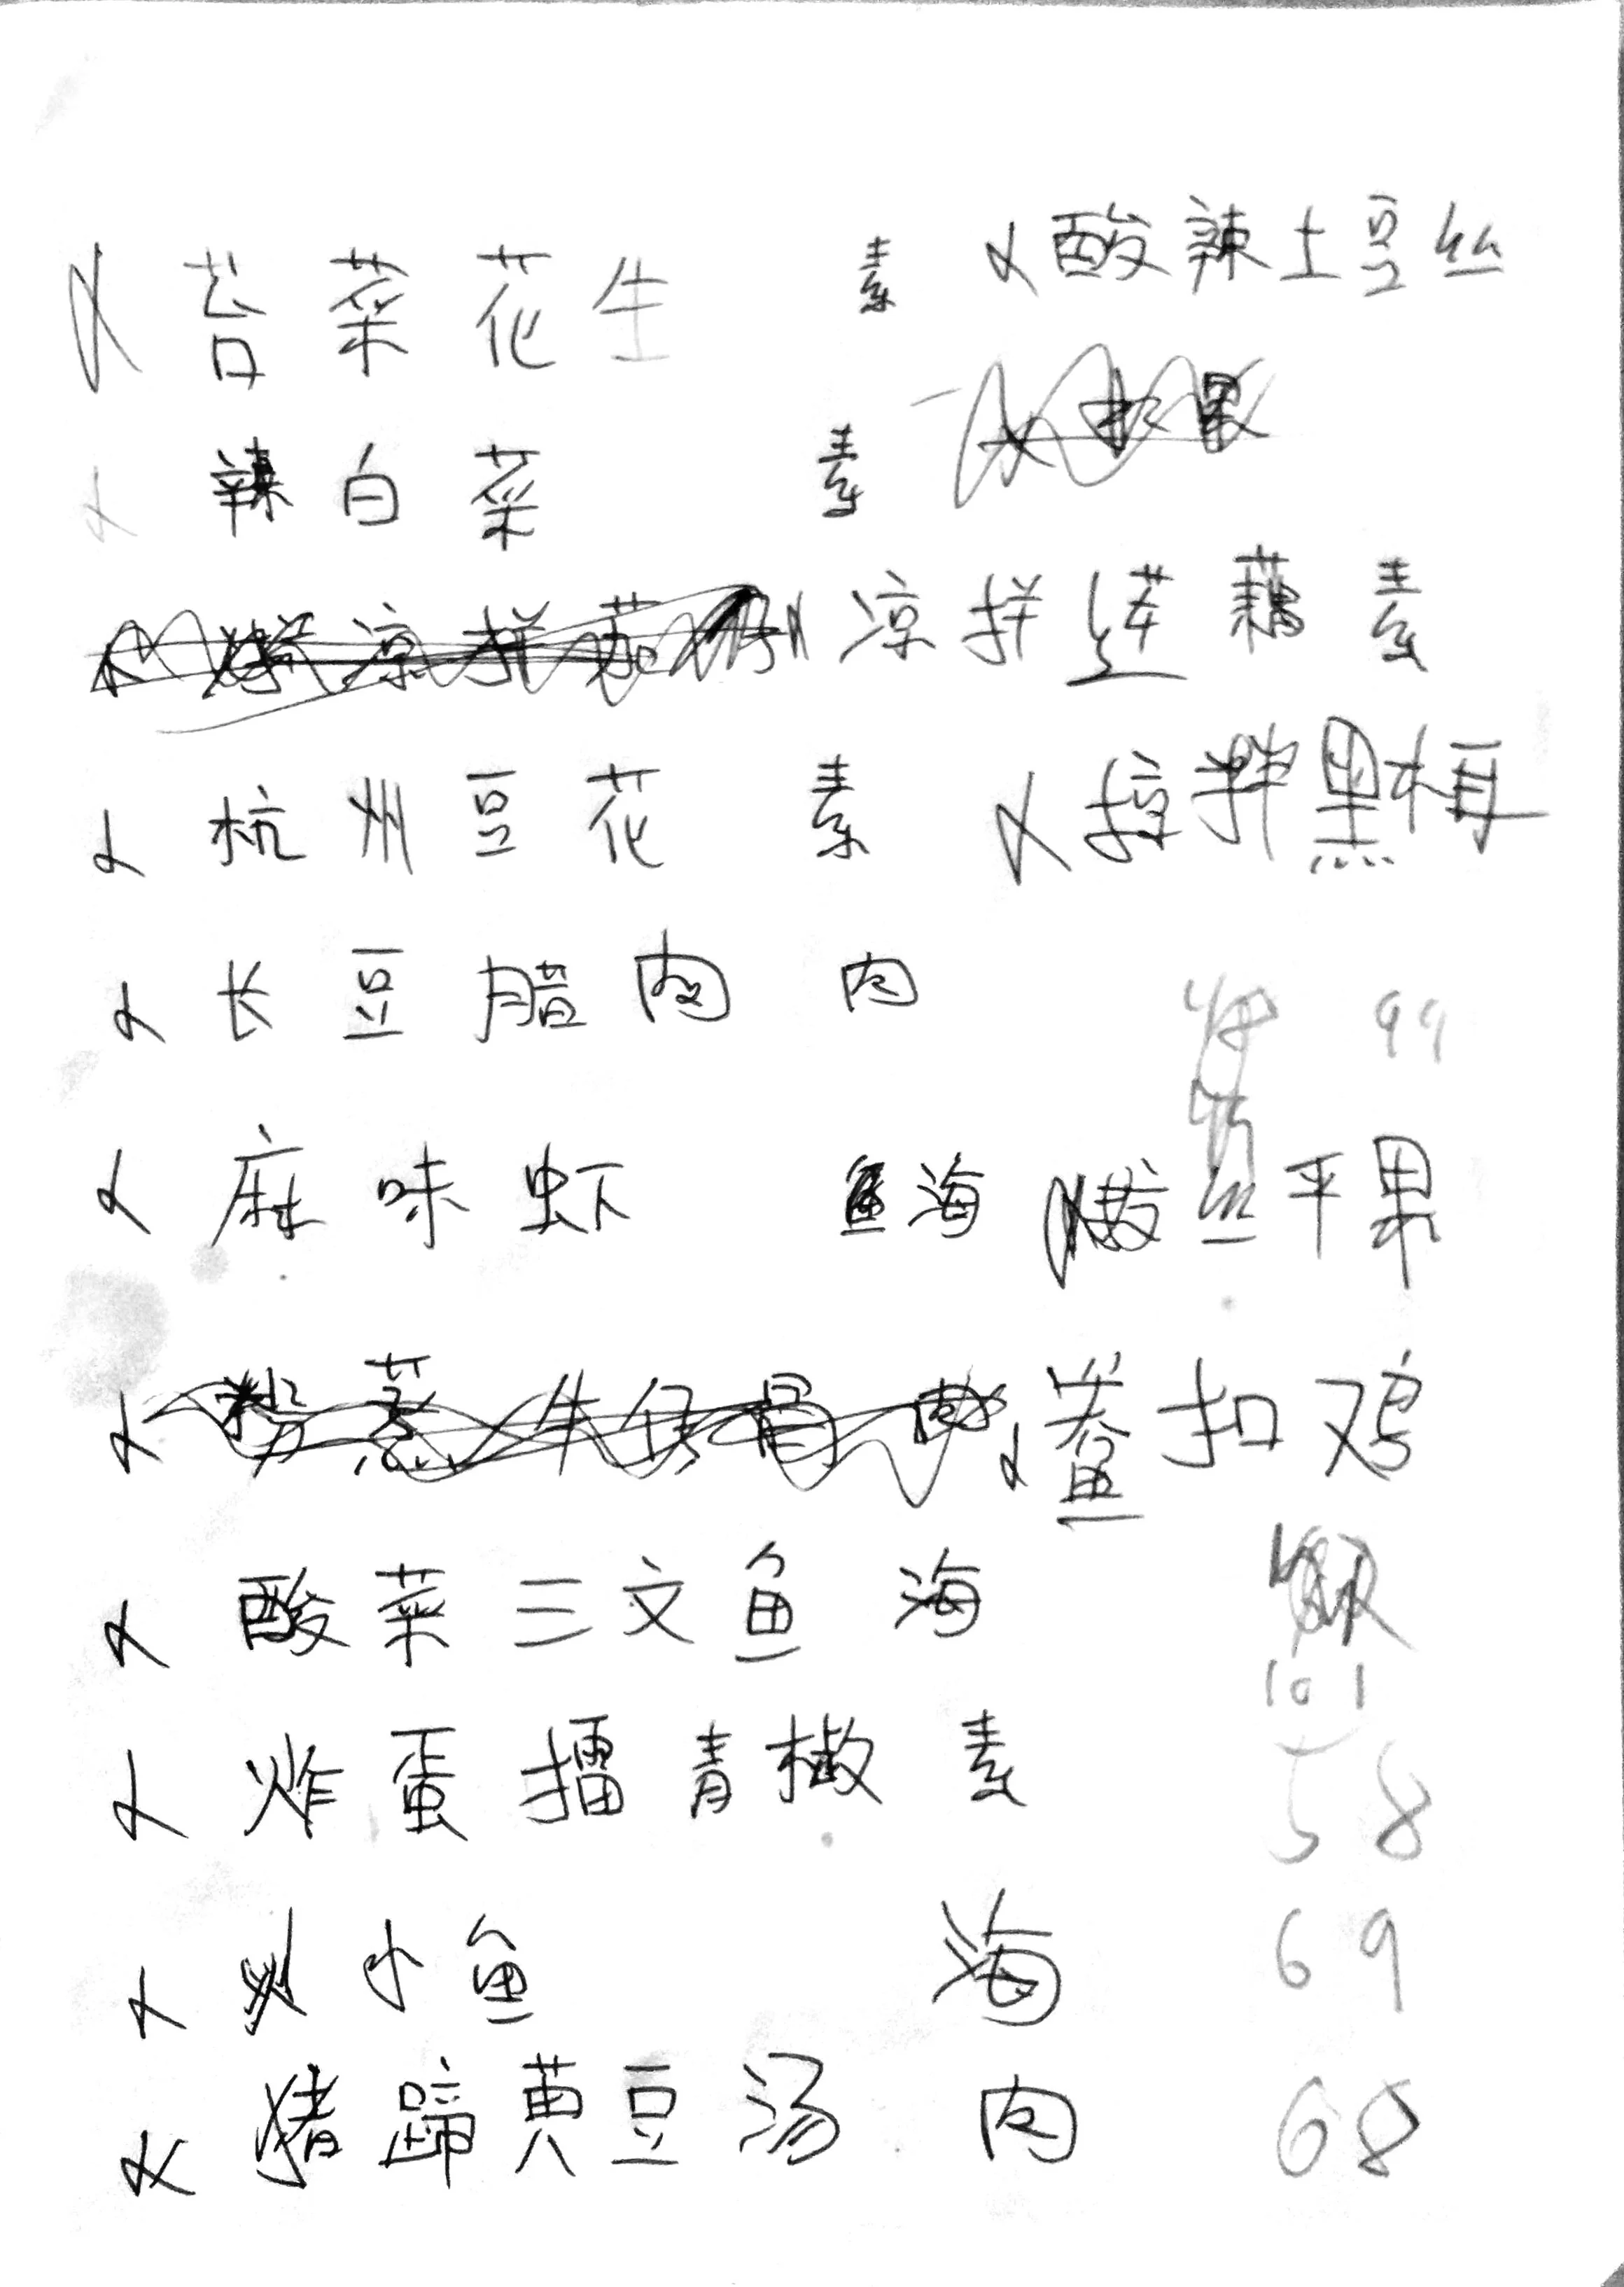 苔菜花生 素 酸辣土豆丝
辣白菜 素
凉拌莲藕 素
杭州豆花 素 拌黑木耳
长豆腊肉 肉
99
麻味虾 海 丝平果
扣鸡
酸菜三文鱼 海
101
炸蛋擂青椒 素 58
小鱼 海 69
猪蹄黄豆汤 肉 68